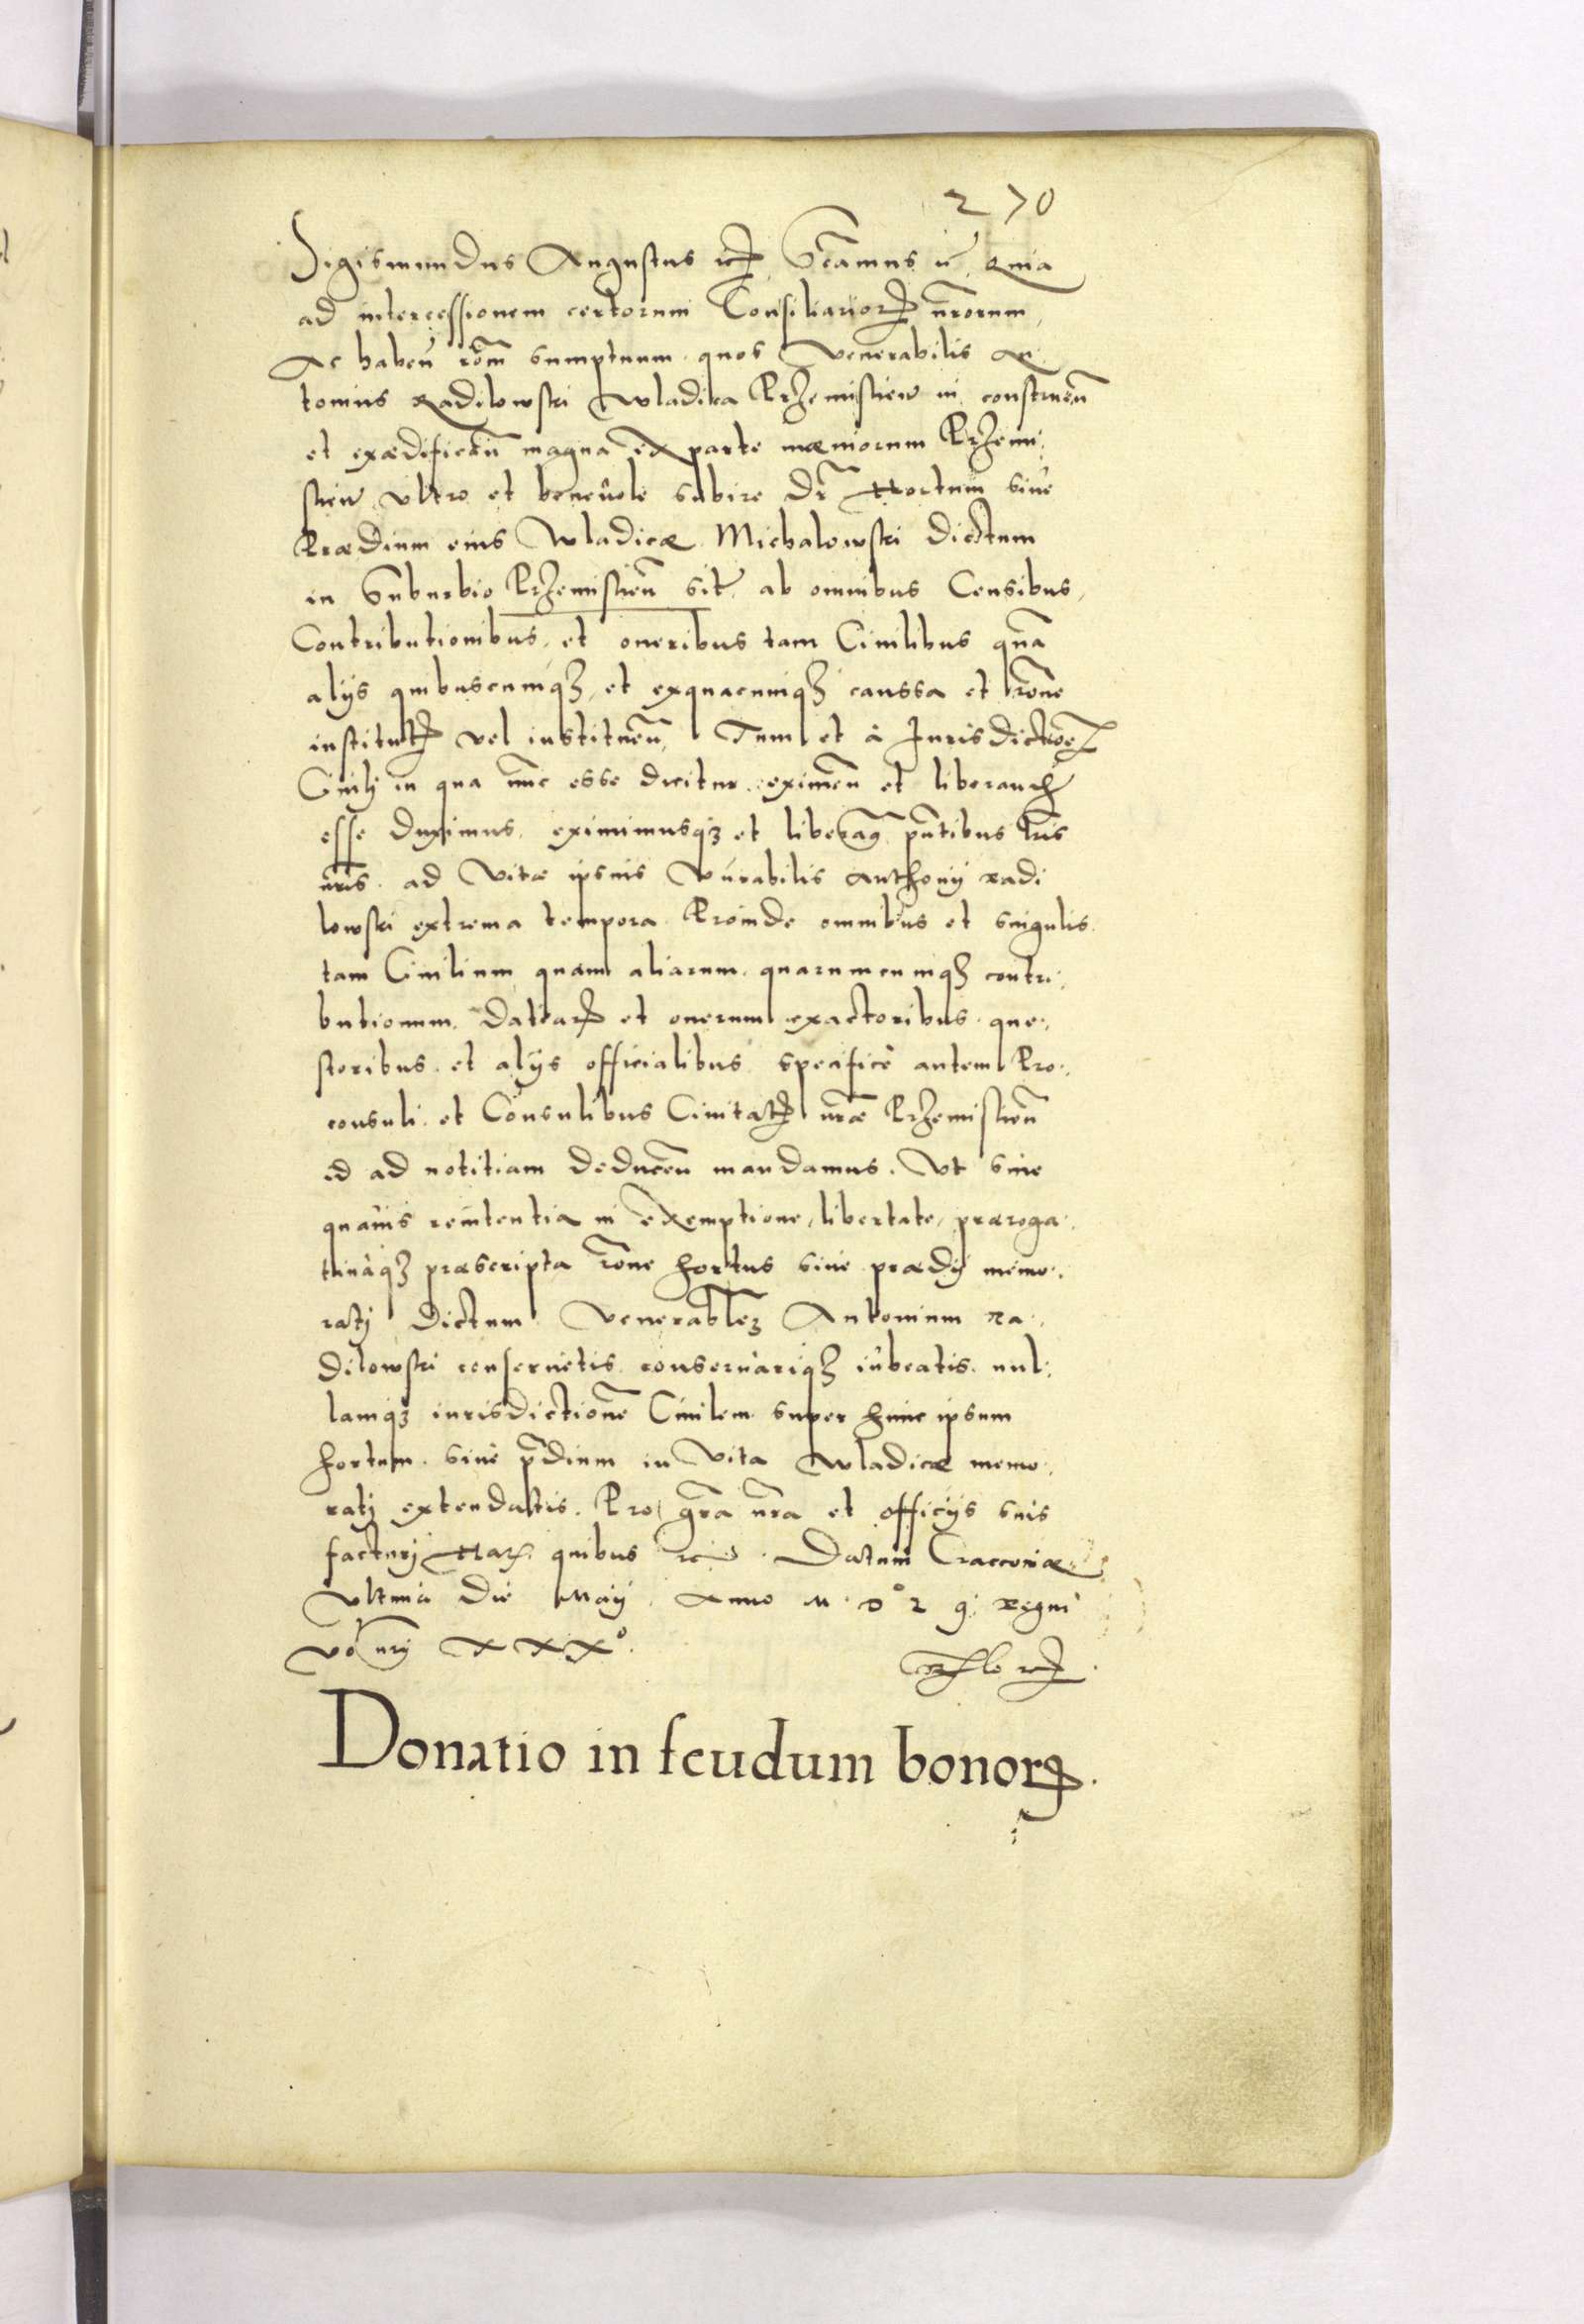 270
Sigismundus Augustus etc. Significamus etc. Quia
ad intercessionem certorum Consiliariorum nrorum,
Ac habeń rōm sumptuum quos Venerabilis An
tonius Radilowski Wladica Przemislień in construeń
et exædificań magna ex parte mæniorum Przemi,
slień ultro et benevole subire dr̄ Hortum sive
Prædium eius Wladicæ Michalowski dictum
in Suburbio Przemislień sit. ab omnibus Censibus,
Contributionibus, et oneribus tam Civilibus quā
alijs quibuscumqz, et exquacumqz caussa et rōne
institutis vel institueń, Tum et à Jurisdictōe
Civilj in qua nūc esse dicitur. eximeń et liberand
esse duximus. eximimusqz et liberamꝰ pn̄tibus lrīs
nrīs. ad Vitæ ipsius Vnrabilis Anthonij Radi
lowski extrema tempora Proinde omnibus et singulis
tam Civilium quam aliarum quarumcumqz contri,
butionum. datiarum et onerum exactoribus. que,
storibus. et alijs officialibus specificè autem Pro,
consuli. et Consulibus Civitatis nrǣ Przemislień
id ad notitiam deduceń mandamus. Ut sine
quavis renitentia in exemptione, libertate, præroga,
tivaqz præscripta rōne hortus sive prædij memo,
ratj dictum Venerablēz Antonium Ra,
dilowski conservetis conservariqz iubeatis. nul,
lamqz iurisdictionē Civilem super hunc ipsum
hortum. sive prǣdium in Vita Wladicæ memo,
ratj extendatis. Pro grā nrā et officijs suis
facturj Har. quibus etc. Datum Cracoviæ
Ultima die Maij. Anno M. D° 2 9. Regni
vō nrj XXX°.
Donatio in feudum bonorꝝ.